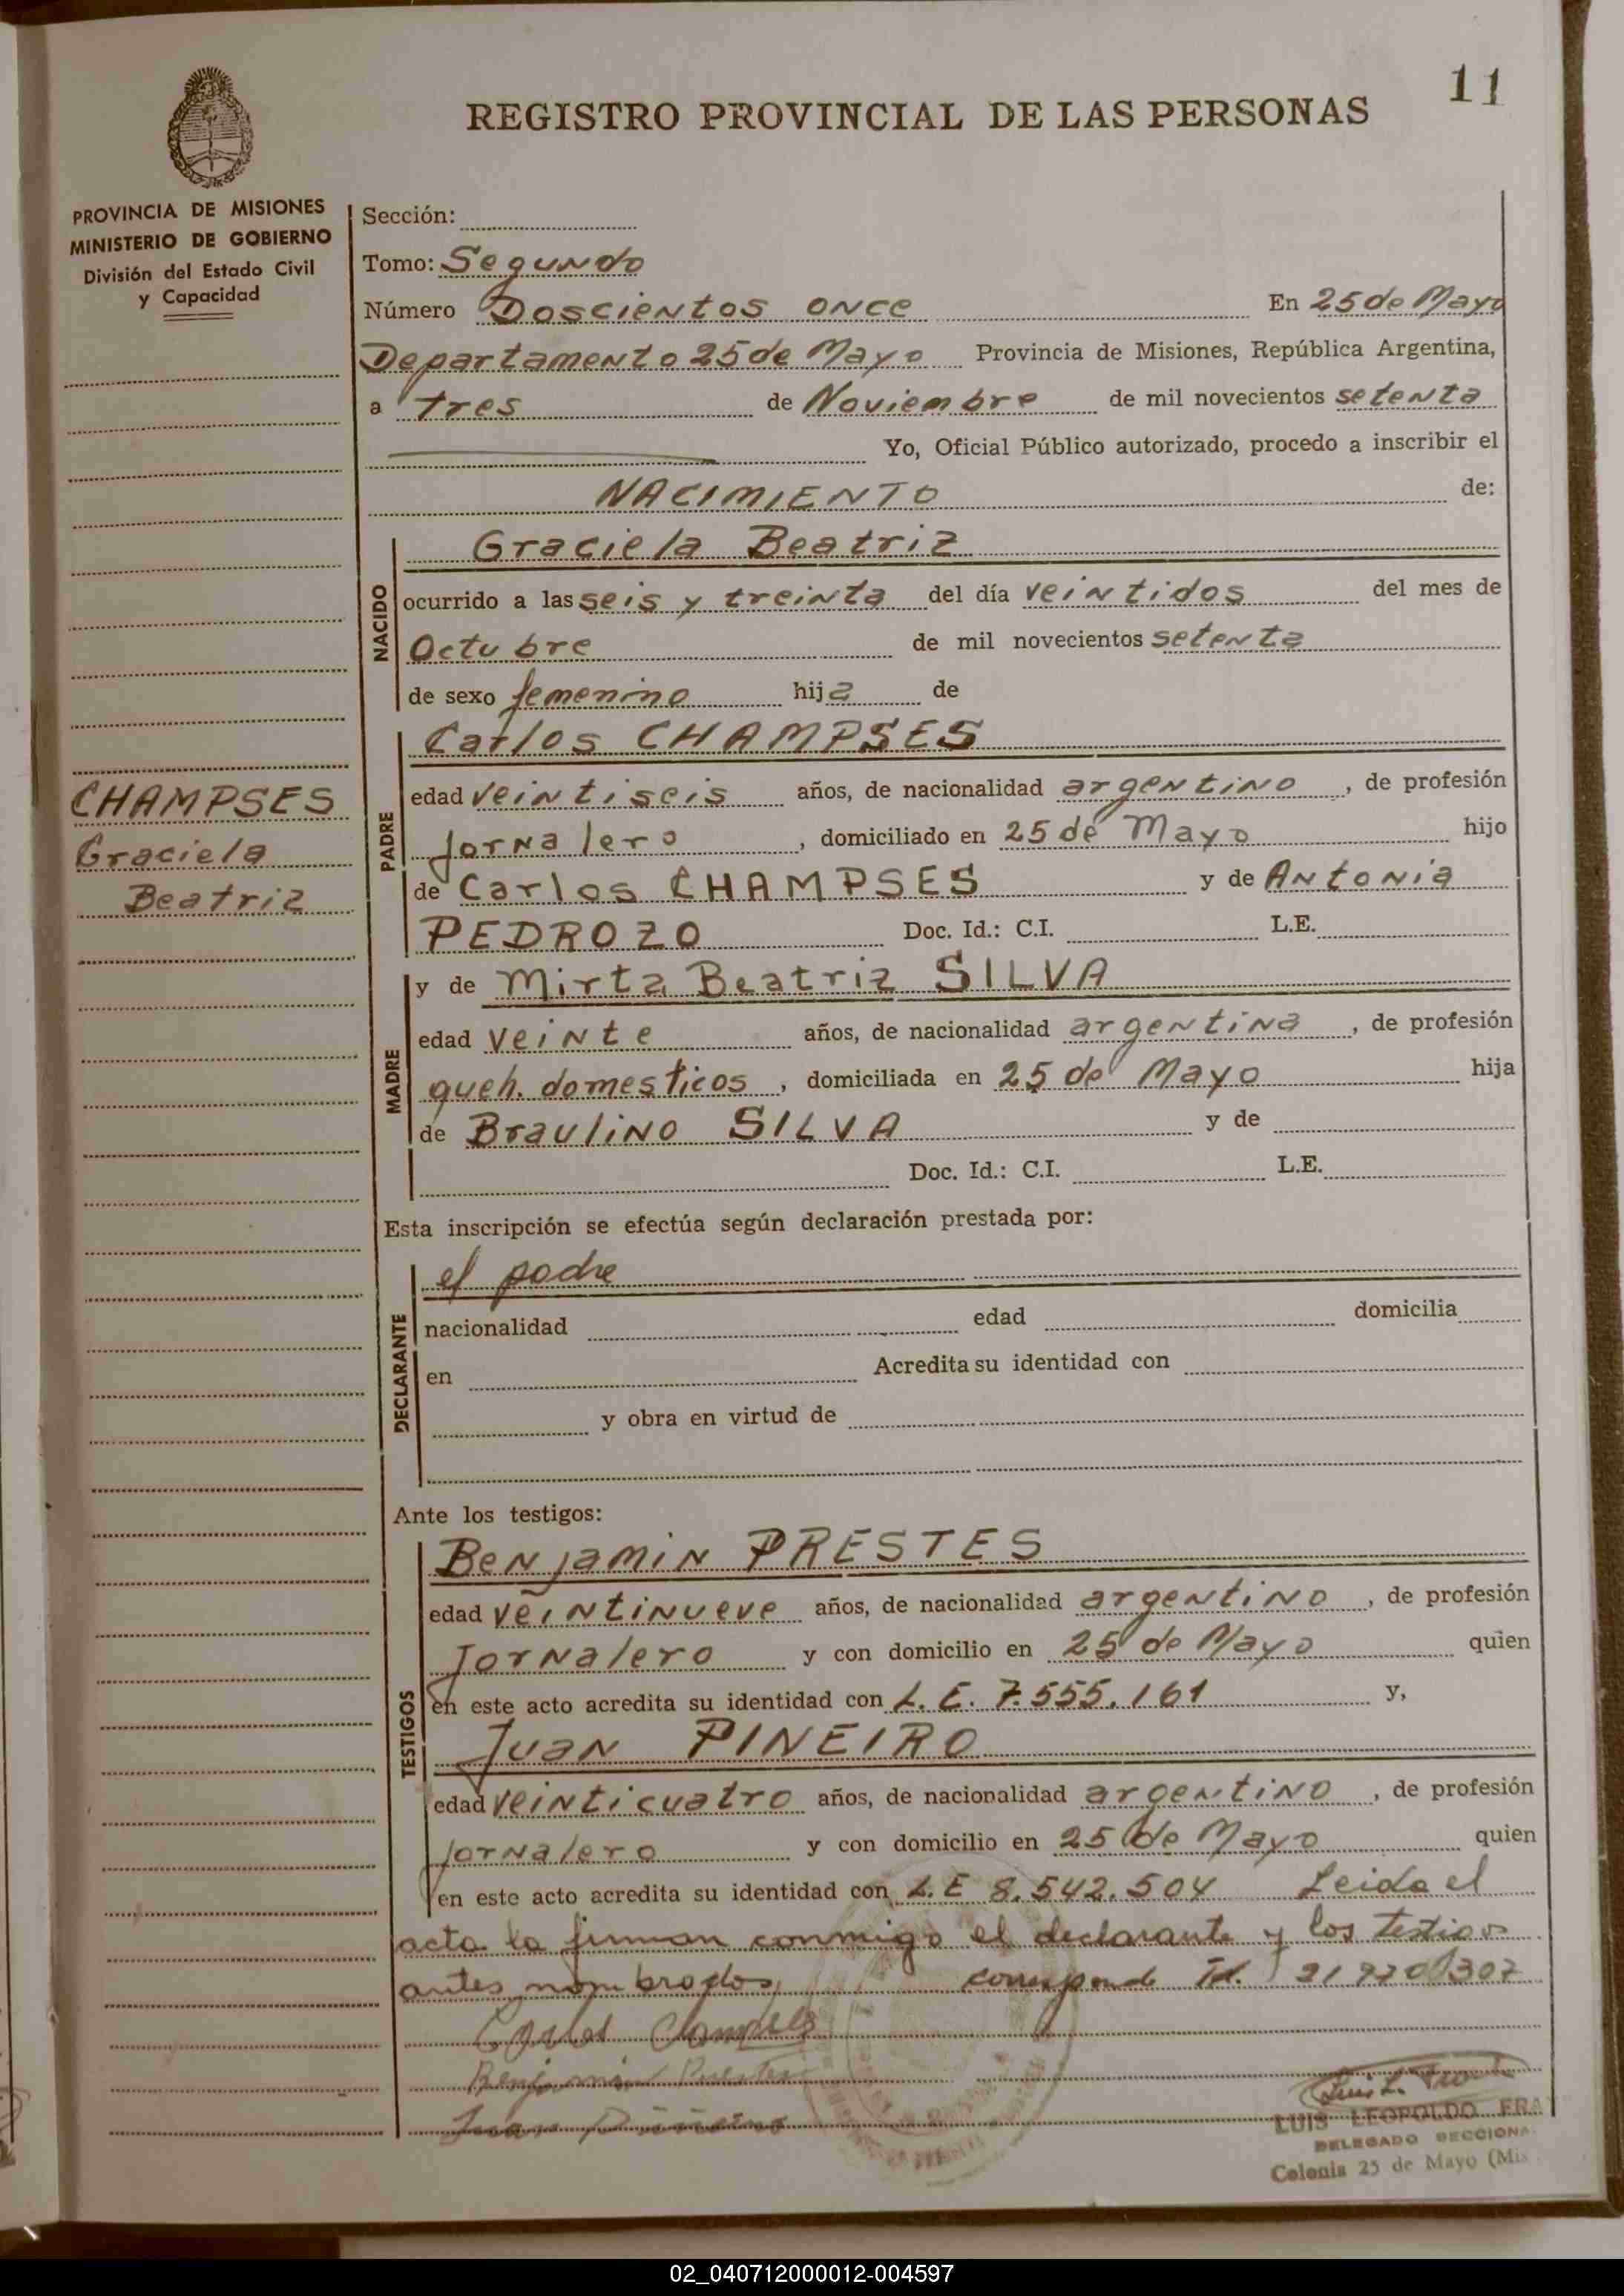 11
REGISTRO PROVINCIAL DE LAS PERSONAS
PROVINCIA DE MISIONES
MINISTERIO DE GOBIERNO
División del Estado Civil
y Capacidad
Sección:
Tomo: Segundo
Número Doscientos once En 25 de Mayo
Departamento 25 de Mayo Provincia de Misiones, República Argentina,
a tres de Noviembre de mil novecientos setenta
Yo, Oficial Público autorizado, procedo a inscribir el
NACIMIENTO de:
NACIDO
Graciela Beatriz
ocurrido a las seis y treinta del día veintidos del mes de
Octubre de mil novecientos setenta
de sexo femenino hija de
CHAMPSES
Graciela
Beatriz
PADRE
Carlos CHAMPSES
edad veintiseis años, de nacionalidad argentino, de profesión
jornalero, domiciliado en 25 de Mayo hijo
de Carlos CHAMPSES y de Antonia
PEDROZO Doc. Id.: C.I. L.E.
MADRE
y de Mirta Beatriz SILVA
edad veinte años, de nacionalidad argentina, de profesión
queh. domesticos, domiciliada en 25 de Mayo hija
de Braulino SILVA y de
Doc. Id.: C.I. L.E.
Esta inscripción se efectúa según declaración prestada por:
DECLARANTE
el padre
nacionalidad edad domicilia
en Acredita su identidad con
y obra en virtud de
Ante los testigos:
TESTIGOS
Benjamin PRESTES
edad veintinueve años, de nacionalidad argentino, de profesión
Jornalero y con domicilio en 25 de Mayo quien
en este acto acredita su identidad con L.E. 7.555.161 y,
Juan PINEIRO
edad veinticuatro años, de nacionalidad argentino, de profesión
jornalero y con domicilio en 25 de Mayo quien
en este acto acredita su identidad con L.E 8.542.504 Leida el
acta la firman conmigo el declarante y los testigos
antes nombrados, corresponde
Carlos
Benjamin
Juan
LUIS LEOPOLDO FRA
DELEGADO SECCIONA
Colonia 25 de Mayo (Mis
02_040712000012-004597